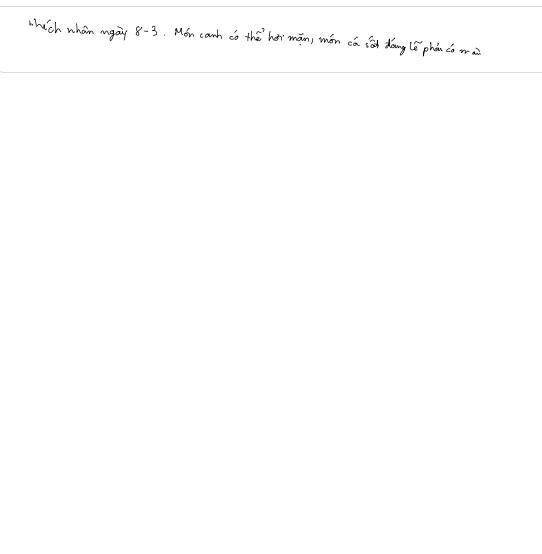 nhân ngày 8-3. Món canh có thể hơi mặn, món cá sốt đáng lẽ phải có mà